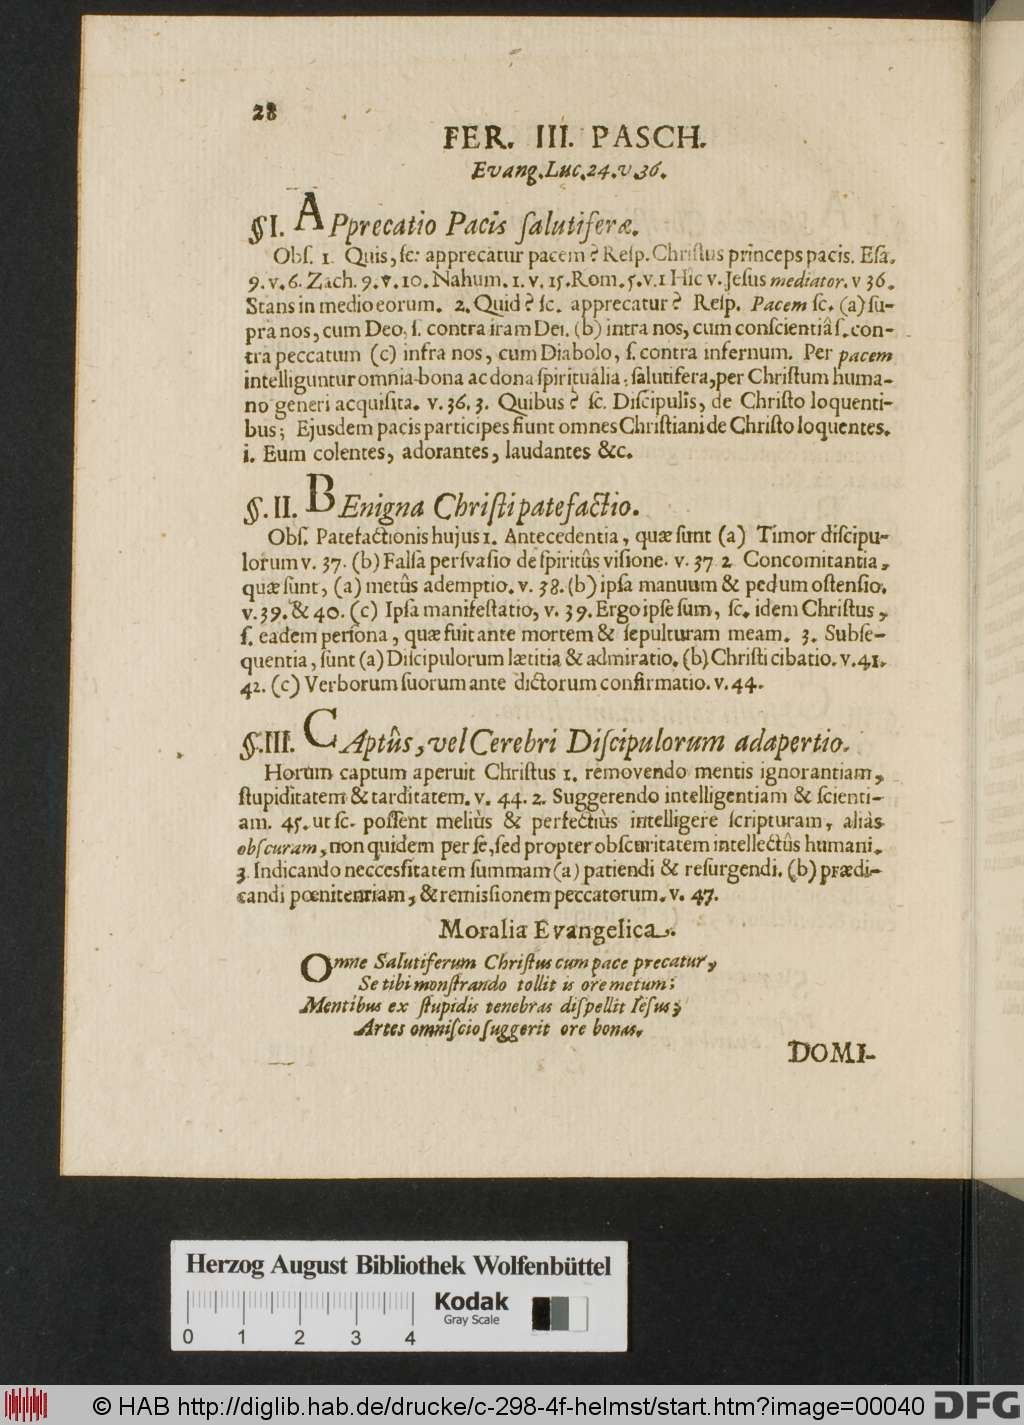 28
FER. III. PASCH.
Evang. Luc. 24. v. 36.
§ I. APprecatio Pacis ſalutiferæ.
Obſ. 1. Quis, ſc: apprecatur pacem? Reſp. Chriſtus princeps pacis. Eſa.
9. v. 6. Zach. 9. v. 10. Nahum. 1. v. 15. Rom. 5. v. 1 Hic v. Jeſus mediator. v 36.
Stans in medio eorum. 2. Quid? ſc. apprecatur? Reſp. Pacem ſc. (a) ſu-
pra nos, cum Deo, ſ. contra iram Dei. (b) intra nos, cum conſcientiâ ſ. con-
tra peccatum (c) infra nos, cum Diabolo, ſ. contra infernum. Per pacem
intelliguntur omnia bona ac dona ſpiritualia, ſalutifera, per Chriſtum huma-
no generi acquiſita. v. 36. 3. Quibus? ſc. Diſcipulis, de Chriſto loquenti-
bus; Ejusdem pacis participes fiunt omnes Chriſtiani de Chriſto loquentes.
i. Eum colentes, adorantes, laudantes &c.
§. II. BEnigna Chriſti patefactio.
Obſ. Patefactionis hujus 1. Antecedentia, quæ ſunt (a) Timor diſcipu-
lorum v. 37. (b) Falſa perſvaſio de ſpiritûs viſione. v. 37 2 Concomitantia,
quæ ſunt, (a) metûs ademptio. v. 38. (b) ipſa manuum & pedum oſtenſio.
v. 39. & 40. (c) Ipſa manifeſtatio, v. 39. Ergo ipſe ſum, ſc. idem Chriſtus,
ſ. eadem perſona, quæ fuit ante mortem & ſepulturam meam. 3. Subſe-
quentia, ſunt (a) Diſcipulorum lætitia & admiratio. (b) Chriſti cibatio. v. 41.
42. (c) Verborum ſuorum ante dictorum confirmatio. v. 44.
§. III. CAptûs, vel Cerebri Diſcipulorum adapertio.
Horum captum aperuit Chriſtus 1. removendo mentis ignorantiam,
ſtupiditatem & tarditatem. v. 44. 2. Suggerendo intelligentiam & ſcienti-
am. 45. ut ſc. poſſent meliùs & perfectiùs intelligere ſcripturam, aliàs
obſcuram, non quidem per ſe, ſed propter obſcuritatem intellectûs humani.
3. Indicando neccesſitatem ſummam (a) patiendi & reſurgendi. (b) prædi-
candi pœnitentiam, & remisſionem peccatorum. v. 47.
Moralia Evangelica.
Omne Salutiferum Chriſtus cum pace precatur,
Se tibi monſtrando tollit is ore metum;
Mentibus ex ſtupidis tenebras diſpellit Ieſus;
Artes omniſcio ſuggerit ore bonas.
DOMI-
Herzog August Bibliothek Wolfenbüttel
Kodak
Gray Scale
0 1 2 3 4
© HAB http://diglib.hab.de/drucke/c-298-4f-helmst/start.htm?image=00040
DFG